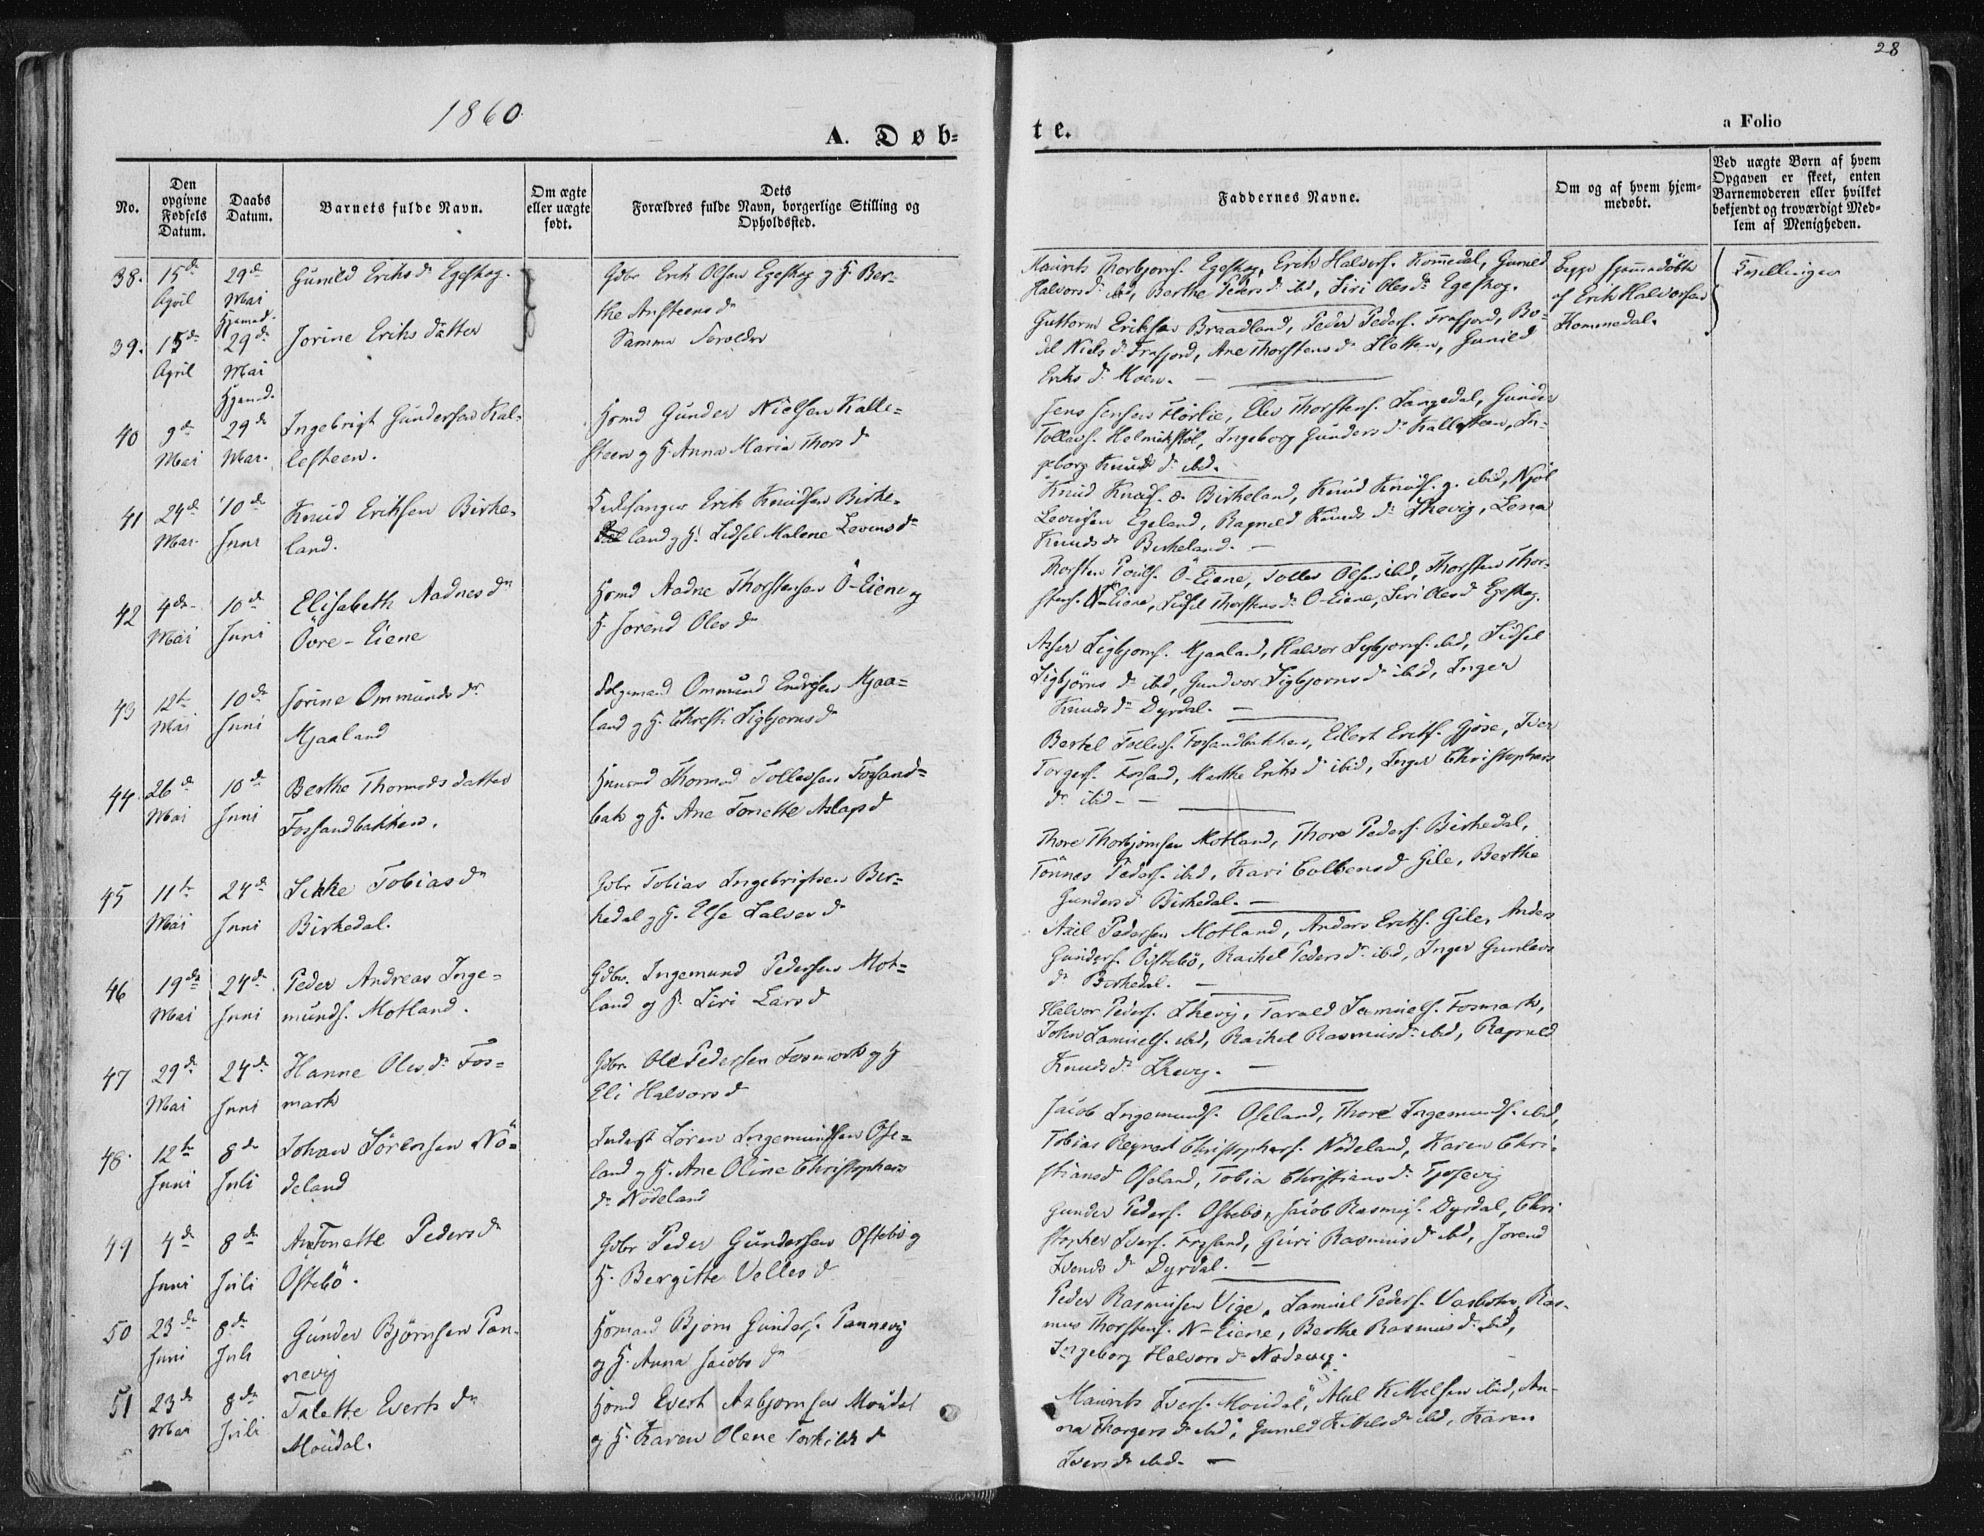 28
1860
A. Døb-
te.
a Folio
No.
Den
opgivne
Fødsels
Datum.
Daabs
Datum.
Barnets fulde Navn.
Om ægte
eller uægte
født.
Dets
Forældres fulde Navn, borgerlige Stilling og
Opholdssted.
Faddernes Navne.
Om og af hvem hjem-
medøbt.
Ved uægte Børn af hvem
Opgaven er skeet, enten
Barnemoderen eller hvilket
bekjendt og troværdigt Med-
lem af Menigheden.
38. 15de April
29de Mai Hjemd.
Gunild Eriks dr Egeskog.
Gdbr Erik Olsen Egeskog og H. Ber-
the Ansteens dr
Maurits Thorbjørns. Egeskog, Erik Halvors. Kommedal, Gunild
Halvors dr ibd, Berthe Peders dr ibd, Siri Oles dr Egeskog.
Begge hjemmedøbte
af Erik Halvorsen
Kommedal.
Tvillinger
39. 15de April
29de Mai Hjemd.
Jorine Eriks datter
Samme Foreldre
Guttorm Eriksen Braadland, Peder Peders. Frafjord, Bo-
dil Niels dr Frafjord, Ane Thorstens dr Sletten, Gunild
Eriks dr Moen.
40 9de Mai
29de Mai.
Ingebrigt Gundersen Kal-
lesteen.
Hsmd Gunder Nielsen Kalle-
steen og H. Anna Maria Thors dr
Jens Jensen Hørlie, Elev Thorstens. Langedal, Gunder
Tollevs. Helmikstøl, Ingeborg Gunders dr Kallesteen, In-
geborg Knuds dr ibd.
41 24de Mai.
10de Juni
Knud Eriksen Birke-
land.
Kirkesanger Erik Knudsen Birke-
land og H. Sidsel Malene Lovens dr
Knud Knuds. æ. Birkeland, Knud Knuds. y. ibid, Njøl
Egeland, Ragnild Knuds dr Thevig, Lena
Knuds dr Birkeland.
42 4de Mai
10de Juni
Elisabeth Aadnes dr
Øvre-Eiene
Hsmd Aadne Thorstensen Ö-Eiene og
H. Jorend Oles dr
Thorsten Pouls. Ö-Eiene, Tollev Olsen ibd, Thorsten Thor-
stens. N-Eiene, Sidsel Thorstens dr Ö-Eiene, Siri Oles dr Egeskog.
43 12te Mai
10de Juni
Jorine Ommunds dr
Mjaaland
Ommund Endresen Mjaa-
land og H. Christi Sigbjørns dr
Asser Sigbjørns. Mjaaland, Halvor Sigbjørns. ibd, Sidsel
Sigbjørns dr ibd, Gundvor Sigbjørns dr ibid, Inger
Knuds dr Dyrdal.
44. 26de Mai
10de Juni
Berthe Thormods datter
Fossandbakken.
Huusmd Thormod Tollevsen Fossand-
bak og H. Ane Tonette Aslags dr
Bertel Tollevs. Fossandbakken, Eilert Eriks. Gjøse, Iver
Torgers. Fossand, Marthe Eriks dr ibid, Inger Christophers
dr ibid.
45 11te Mai
24de Juni
Sikke Tobias dr
Birkedal.
Gdbr Tobias Ingebrigtsen Bir-
kedal og H. Else Salves dr
Thore Thorbjørnsen Motland, Thore Peders. Birkedal,
Tønnes Peders. ibd, Kari Colbens dr Gile, Berthe
Gunders dr Birkedal.
46 19de Mai
24de Juni
Peder Andreas Inge-
munds. Motland.
Gdbr. Ingemund Pedersen Mot-
land og H. Siri Lars dr
Axel Pedersen Motland, Anders Eriks. Gile, Anders
Gunders. Östebö, Rachel Peders dr ibid, Inger Gunlevs
dr Birkedal.
47 29de Mai
24de Juni
Hanne Oles dr Fos-
mark
Gdbr. Ole Pedersen Fosmark og H
Eli Halvors dr
Halvor Peders. Thevig, Tarald Samuels. Fosmark,
John Samuels. ibd, Rachel Rasmus dr ibid, Ragnild
Knuds dr Thevig.
48. 12te Juni
8de Juli
Johan Sörensen Nö-
deland
Inderst Sören Ingemundsen Ose-
land og H. Ane Oline Christophers
dr Nödeland
Jacob Ingemunds. Oseland, Thore Ingemunds. ibid,
Tobias Christophers. Nödeland, Karen Chri-
stians dr Oseland, Tobia Christians dr
49 4de Juni
8de Juli
Antonette Peders dr
Ostebö.
Gdbr Peder Gundersen Ostebö og
H. Bergitte Velles dr
Gunder Peders. Ostebö, Jacob Rasmus. Dyrdal, Chri
stopher Ivers. Fossand, Guri Rasmus dr ibd, Jorend
Svends dr Dyrdal.
50 23de Juni
8de Juli
Gunder Bjørnsen Pan-
nevig
Hsmand Bjørn Gunders. Pannevig
og H. Anna Jacobs dr
Peder Rasmusen Vige, Samuel Peders. Vasbotn, Ras-
mus Thorstens. N-Eiene, Berthe Rasmus dr ibid,
Ingeborg Halvors dr
51 23de Mai
8de Juli
Talette Everts dr
Moudal.
Hsmd Evert Asbjørnsen Moudal
og H. Karen Olene Torkilds dr
Maurits Ivers. Moudal, Kittelsen ibid, An-
na Thorgers dr ibd, Gunild Kittels dr ibd, Karen
Ivers dr ibid.